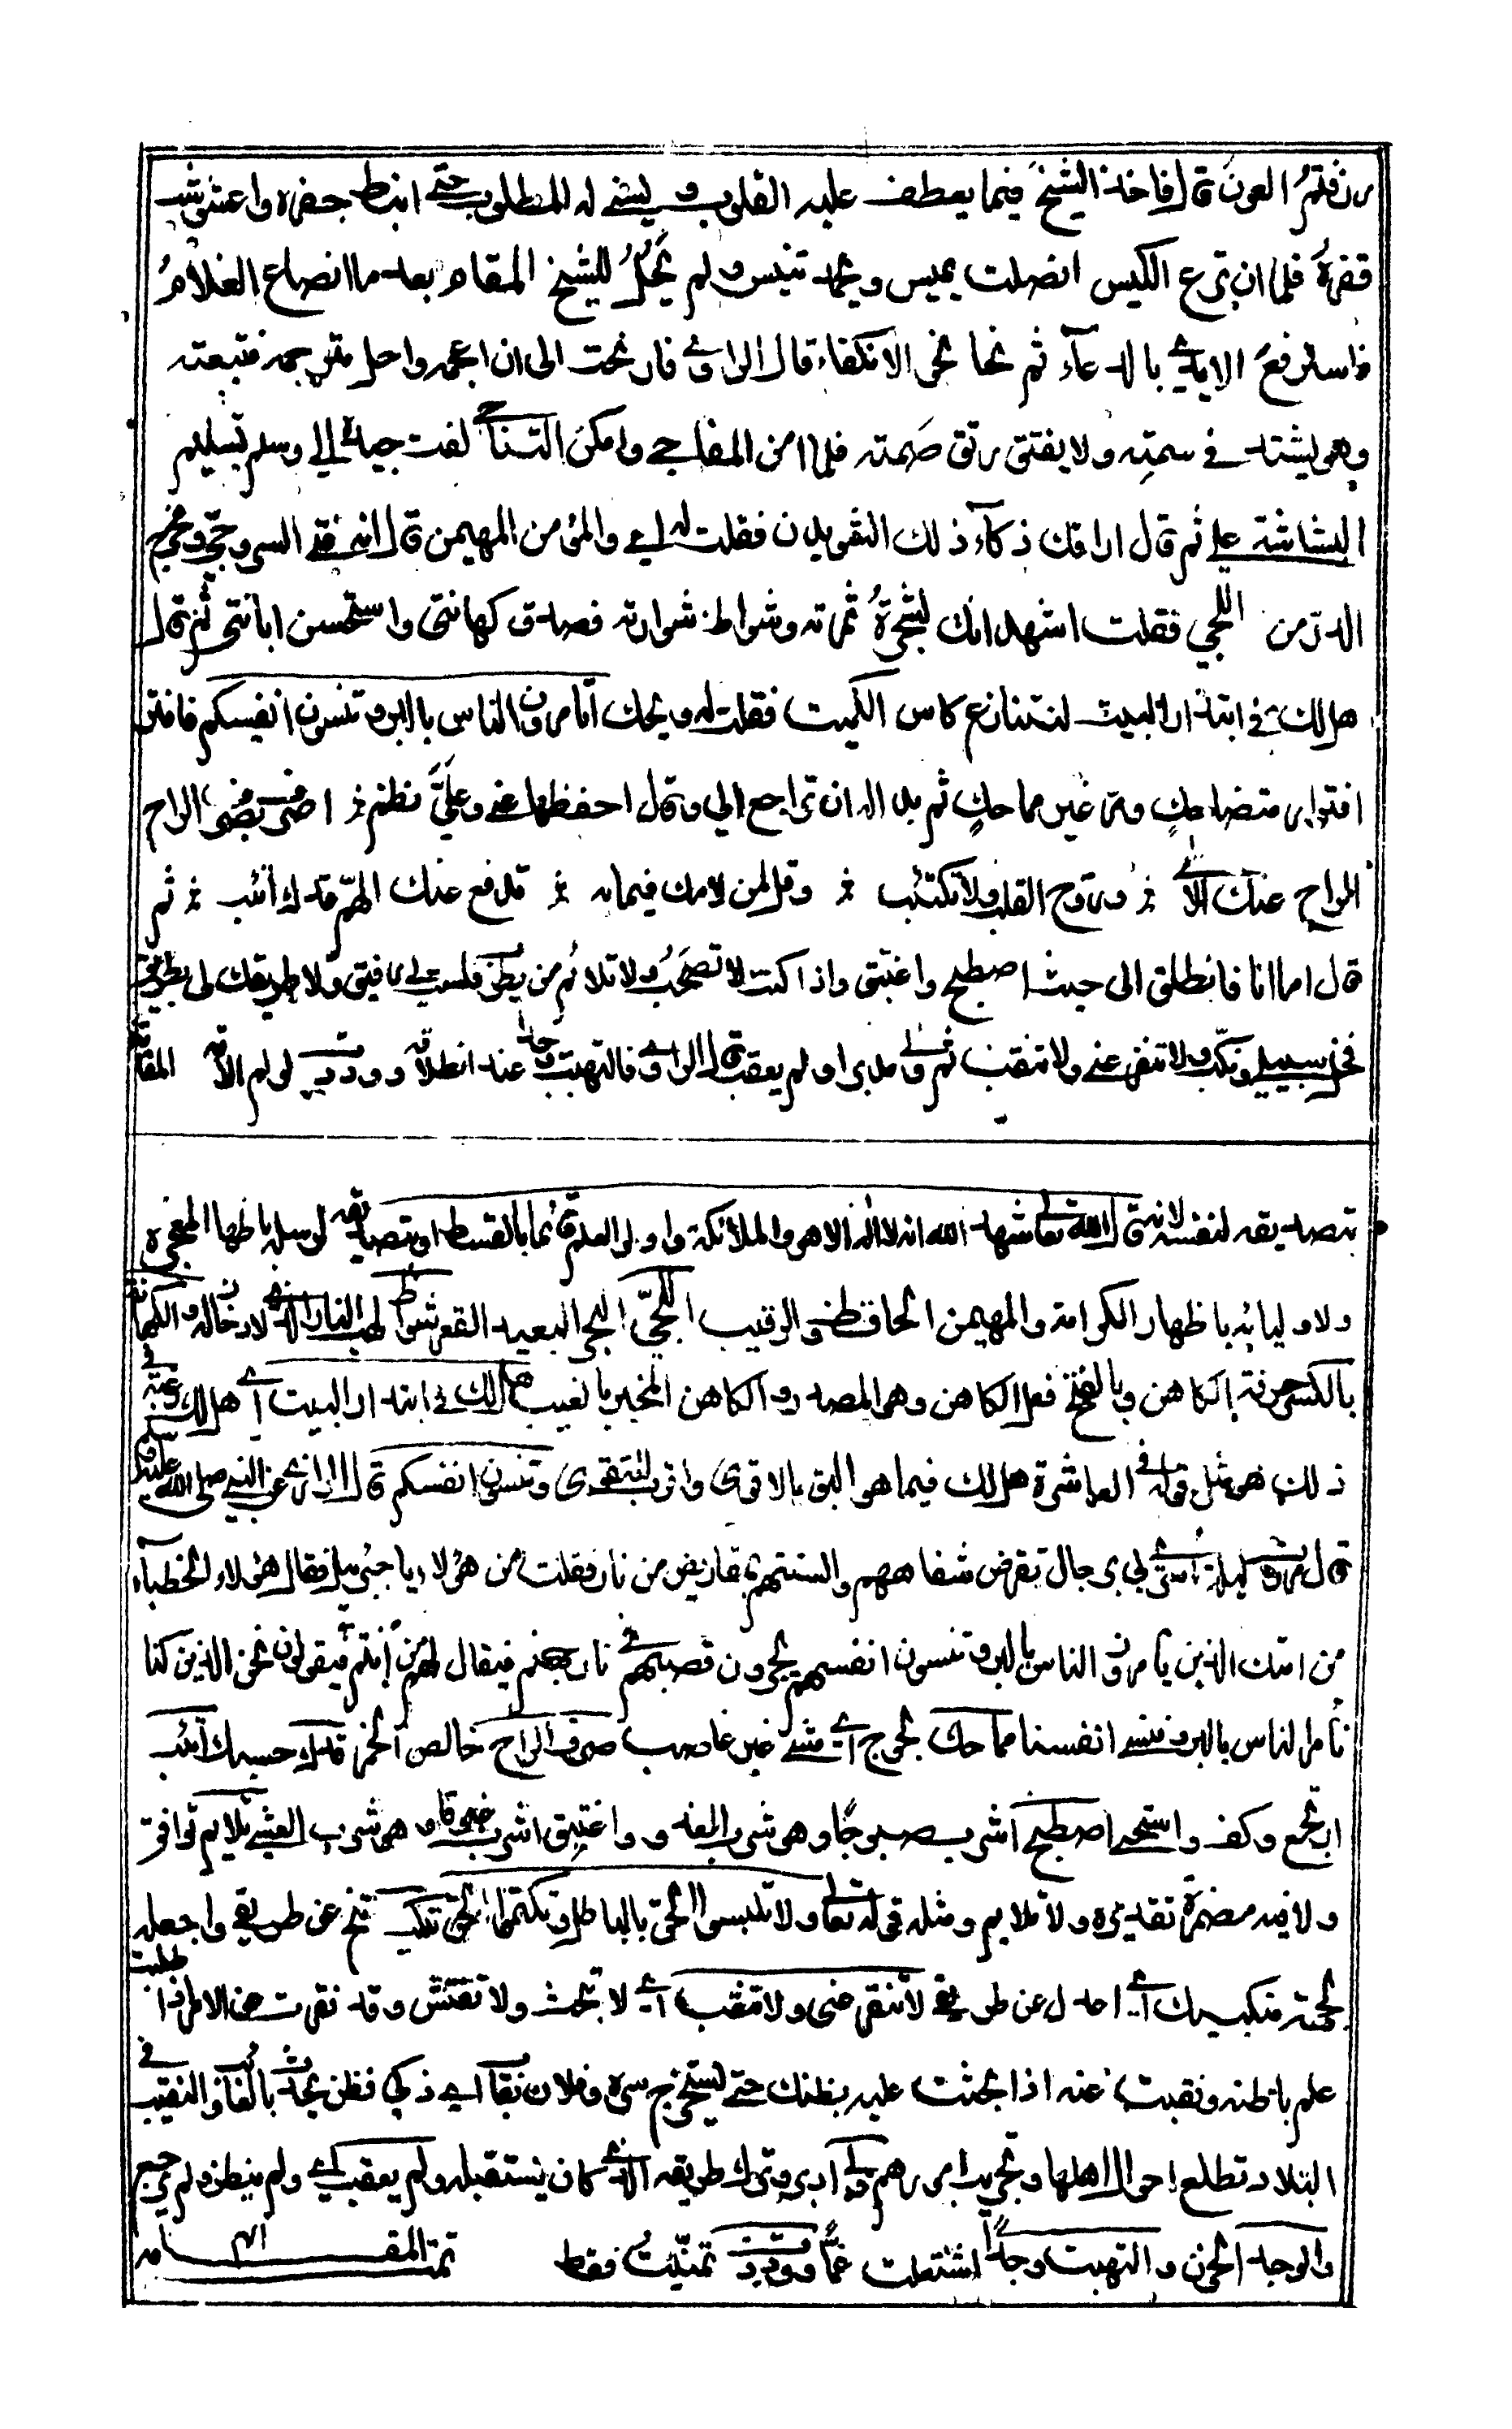 رزقتم العون قال فاخذ الشيخ فيما يعطف عليه القلوب ويسني له المطلوب حتى انبط حفره واعشوشب
قفره فلما ان ترع الكيس انصلت يميس ويحمد تنيس ولم يحل للشيخ المقام بعد ما انصاع الغلام
فاسترفع الايدي بالدعاء ثم نحا نحو الانكفاء قال الراوي فارتحت الى ان اعجمه واحل مترجمه فتبعته
وهو يشتد في سمته ولا يفتق رتق صمته فلما امن المفاجي وامكن التناجي لفت جيده الي وسلم تسليم
البشاشة علي ثم قال اراقك ذكاء ذلك الشويدن فقلت له اي والمؤمن المهيمن قال انه فتى السروجي ومخرج
الدر من اللجي فقلت اشهد انك لشجرة ثمرته وشواظ شرارته فصدق كهانتي واستحسن ابانتي ثم قال
هل لك في ابتدار البيت لنتنازع كاس الكميت فقلت له ويحك اتامرون الناس بالبر وتنسون انفسكم فافتر
افترار متضاحك ومر غير مماحك ثم بدا له ان تراجع الي وقال احفظها عني وعلي نظم اصرف بصرف الراح
الراح عنك الاسى وروح القلب ولا تكتئب وقل لمن لامك فيما به تدفع عنك الهم قدك اتئب ثم
قال اما انا فانطلق الى حيث اصطبح واغتبق واذا كنت لا تصحب ولا تلائم من يطرب فلست لي برفيق ولا طريقك لي بطريق
فخل سبيلي ونكب ولا تنقر عني ولا تنقب ثم ولى مدبرا ولم يعقب قال الراوي فالتهبت وجدا عند انطلاقه ووددت لو لم الاقه المقامة
بتصديقه لنفسه لانه قال الله تعالى شهد الله انه لا اله الا هو والملائكة واولو العلم قائما بالقسط او بتصديقه لرسله باظهار المعجزة
ولاوليائه باظهار الكرامة والمهيمن الحافظ والرقيب اللجي البحر البعيد القعر شواظ لهب النار الذي لا دخان له والكهانة
بالكسر حرفة الكاهن وبالفتح فعل الكاهن وهو المصدر والكاهن المخبر بالغيب هل لك في ابتدار البيت اي هل لك رغبة في
ذلك وهو مثل قوله في العاشرة هل لك فيما هو اليق بالاقوى واقرب للتقوى وتنسون انفسكم قال الرازي عن النبي صلى الله عليه وسلم
قال مررت ليلة اسري بي برجال تقرض شفاههم والسنتهم بمقاريض من نار فقلت من هؤلاء يا جبرئيل فقال هؤلاء الخطباء
من امتك الذين يامرون الناس بالبر وتنسون انفسهم يجرون قصبهم في نار جهنم فيقال لهم من انتم فيقولون نحن الذين كنا
نامر الناس بالبر وننسى انفسنا مماحك لجوج اي مشى غير غاصب صرف الراح خالص الخمر قدك حسبك اتئب
اي تجمع وكف واستحي اصطبح اشرب صبوحا وهو شرب الغدو واغتبق اشرب غبوقا وهو شرب العشي تلايم توافق
ولا فيه مضمرة تقديره ولا تلايم ومثله قوله تعالى ولا تلبسوا الحق بالباطل وتكتموا الحق تنكب تنح عن طريقي واجعله
بجهة منكبيك اي احدل عن طريقي لا تنقر عني ولا تنقب اي لا تبحث ولا تفتش وقد نقرت عن الامر اذا طلبت
علم باطنه ونقبت عنه اذا بحثت عليه بظنك حتى يستخرج سره وفلان نقاب اي ذكي فطن يحدث بالغائب والتنقيب في
البلاد تطلع احوال اهلها وتجريد امرهم ولى ادبر وترك طريقه الذي كان يستقبله ولم يعقب اي ولم ينظر ولم يرجع
والوجد الحزن والتهبت وجدا اشتعلت غما ووددت تمنيت فقط تمت المقامه